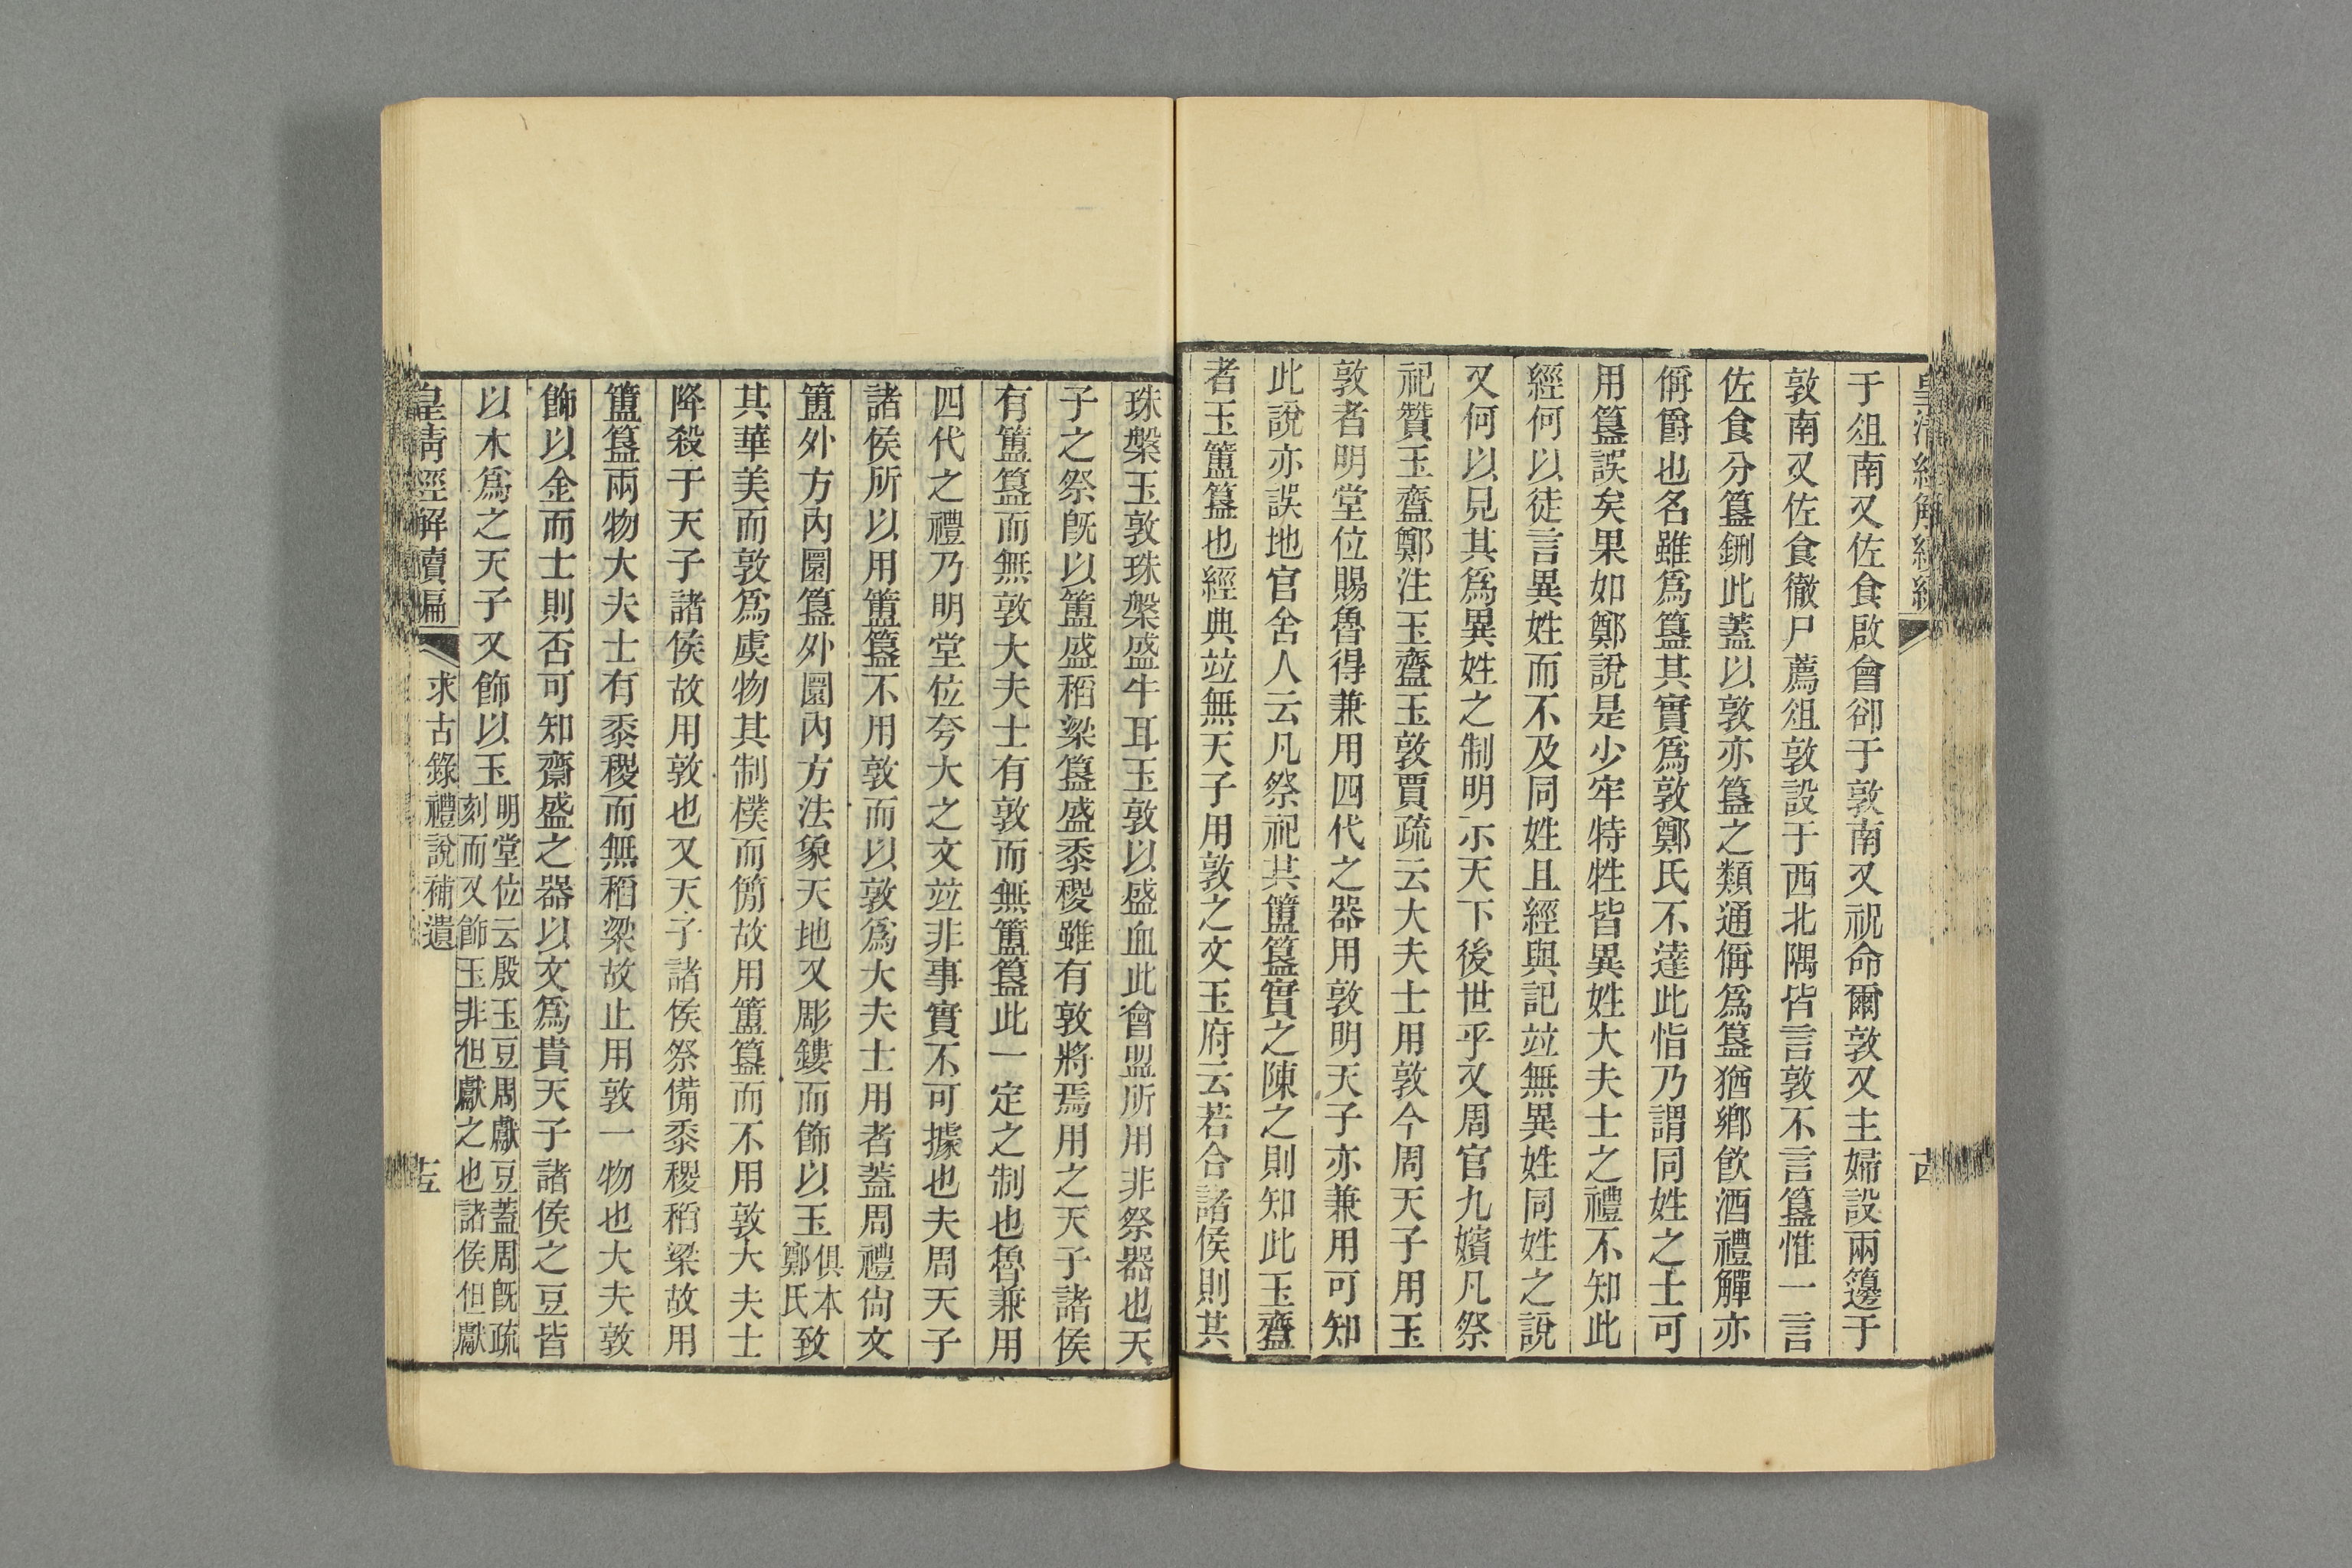 于俎南又佐食啟會郤于敦南又祝命爾敦又主婦設兩籩于
敦南又佐食徹尸薦俎敦設于西北隅皆言敦不言簋惟一言
佐食分簋鉶此蓋以敦亦簋之類通偁爲簋猶鄉飮酒禮觶亦
偁爵也名雖爲簋其實爲敦鄭氏不達此恉乃謂同姓之士可
用簋誤矣果如鄭說是少牢特牲皆異姓大夫士之禮不知此
經何以徒言異姓而不及同姓且經與記竝無異姓同姓之說
又何以見其爲異姓之制明示天下後世乎又周官九嬪凡祭
祀贊玉齍鄭注玉齍玉敦賈疏云大夫士用敦今周天子用玉
敦者明堂位賜魯得兼用四代之器用敦明天子亦兼用可知
此說亦誤地官舍人云凡祭祀共簠簋實之陳之則知此玉齍
者玉簠簋也經典竝無天子用敦之文玉府云若合諸侯則共
珠槃玉敦珠槃盛牛耳玉敦以盛血此會盟所用非祭器也天
子之祭旣以簠盛稻梁簋盛黍稷雖有敦將焉用之天子諸侯
有簠簋而無敦大夫士有敦而無簠簋此一定之制也魯兼用
四代之禮乃明堂位夸大之文竝非事實不可據也夫周天子
諸侯所以用簠簋不用敦而以敦爲大夫士用者蓋周禮尙文
簠外方內圜簋外圜內方法象天地又彫鏤而飾以玉俱本鄭氏致
其華美而敦爲虞物其制樸而簡故用簠簋而不用敦大夫士
降殺于天子諸侯故用敦也又天子諸侯祭備黍稷稻梁故用
簠簋兩物大夫士有黍稷而無稻梁故止用敦一物也大夫敦
飾以金而士則否可知齋盛之器以文爲貴天子諸侯之豆皆
以木爲之天子又飾以玉明堂位云殷玉豆周獻豆蓋周旣疏刻而又飾玉非但獻之也諸侯但獻
皇淸經解續編 求古錄禮說補遺 十五